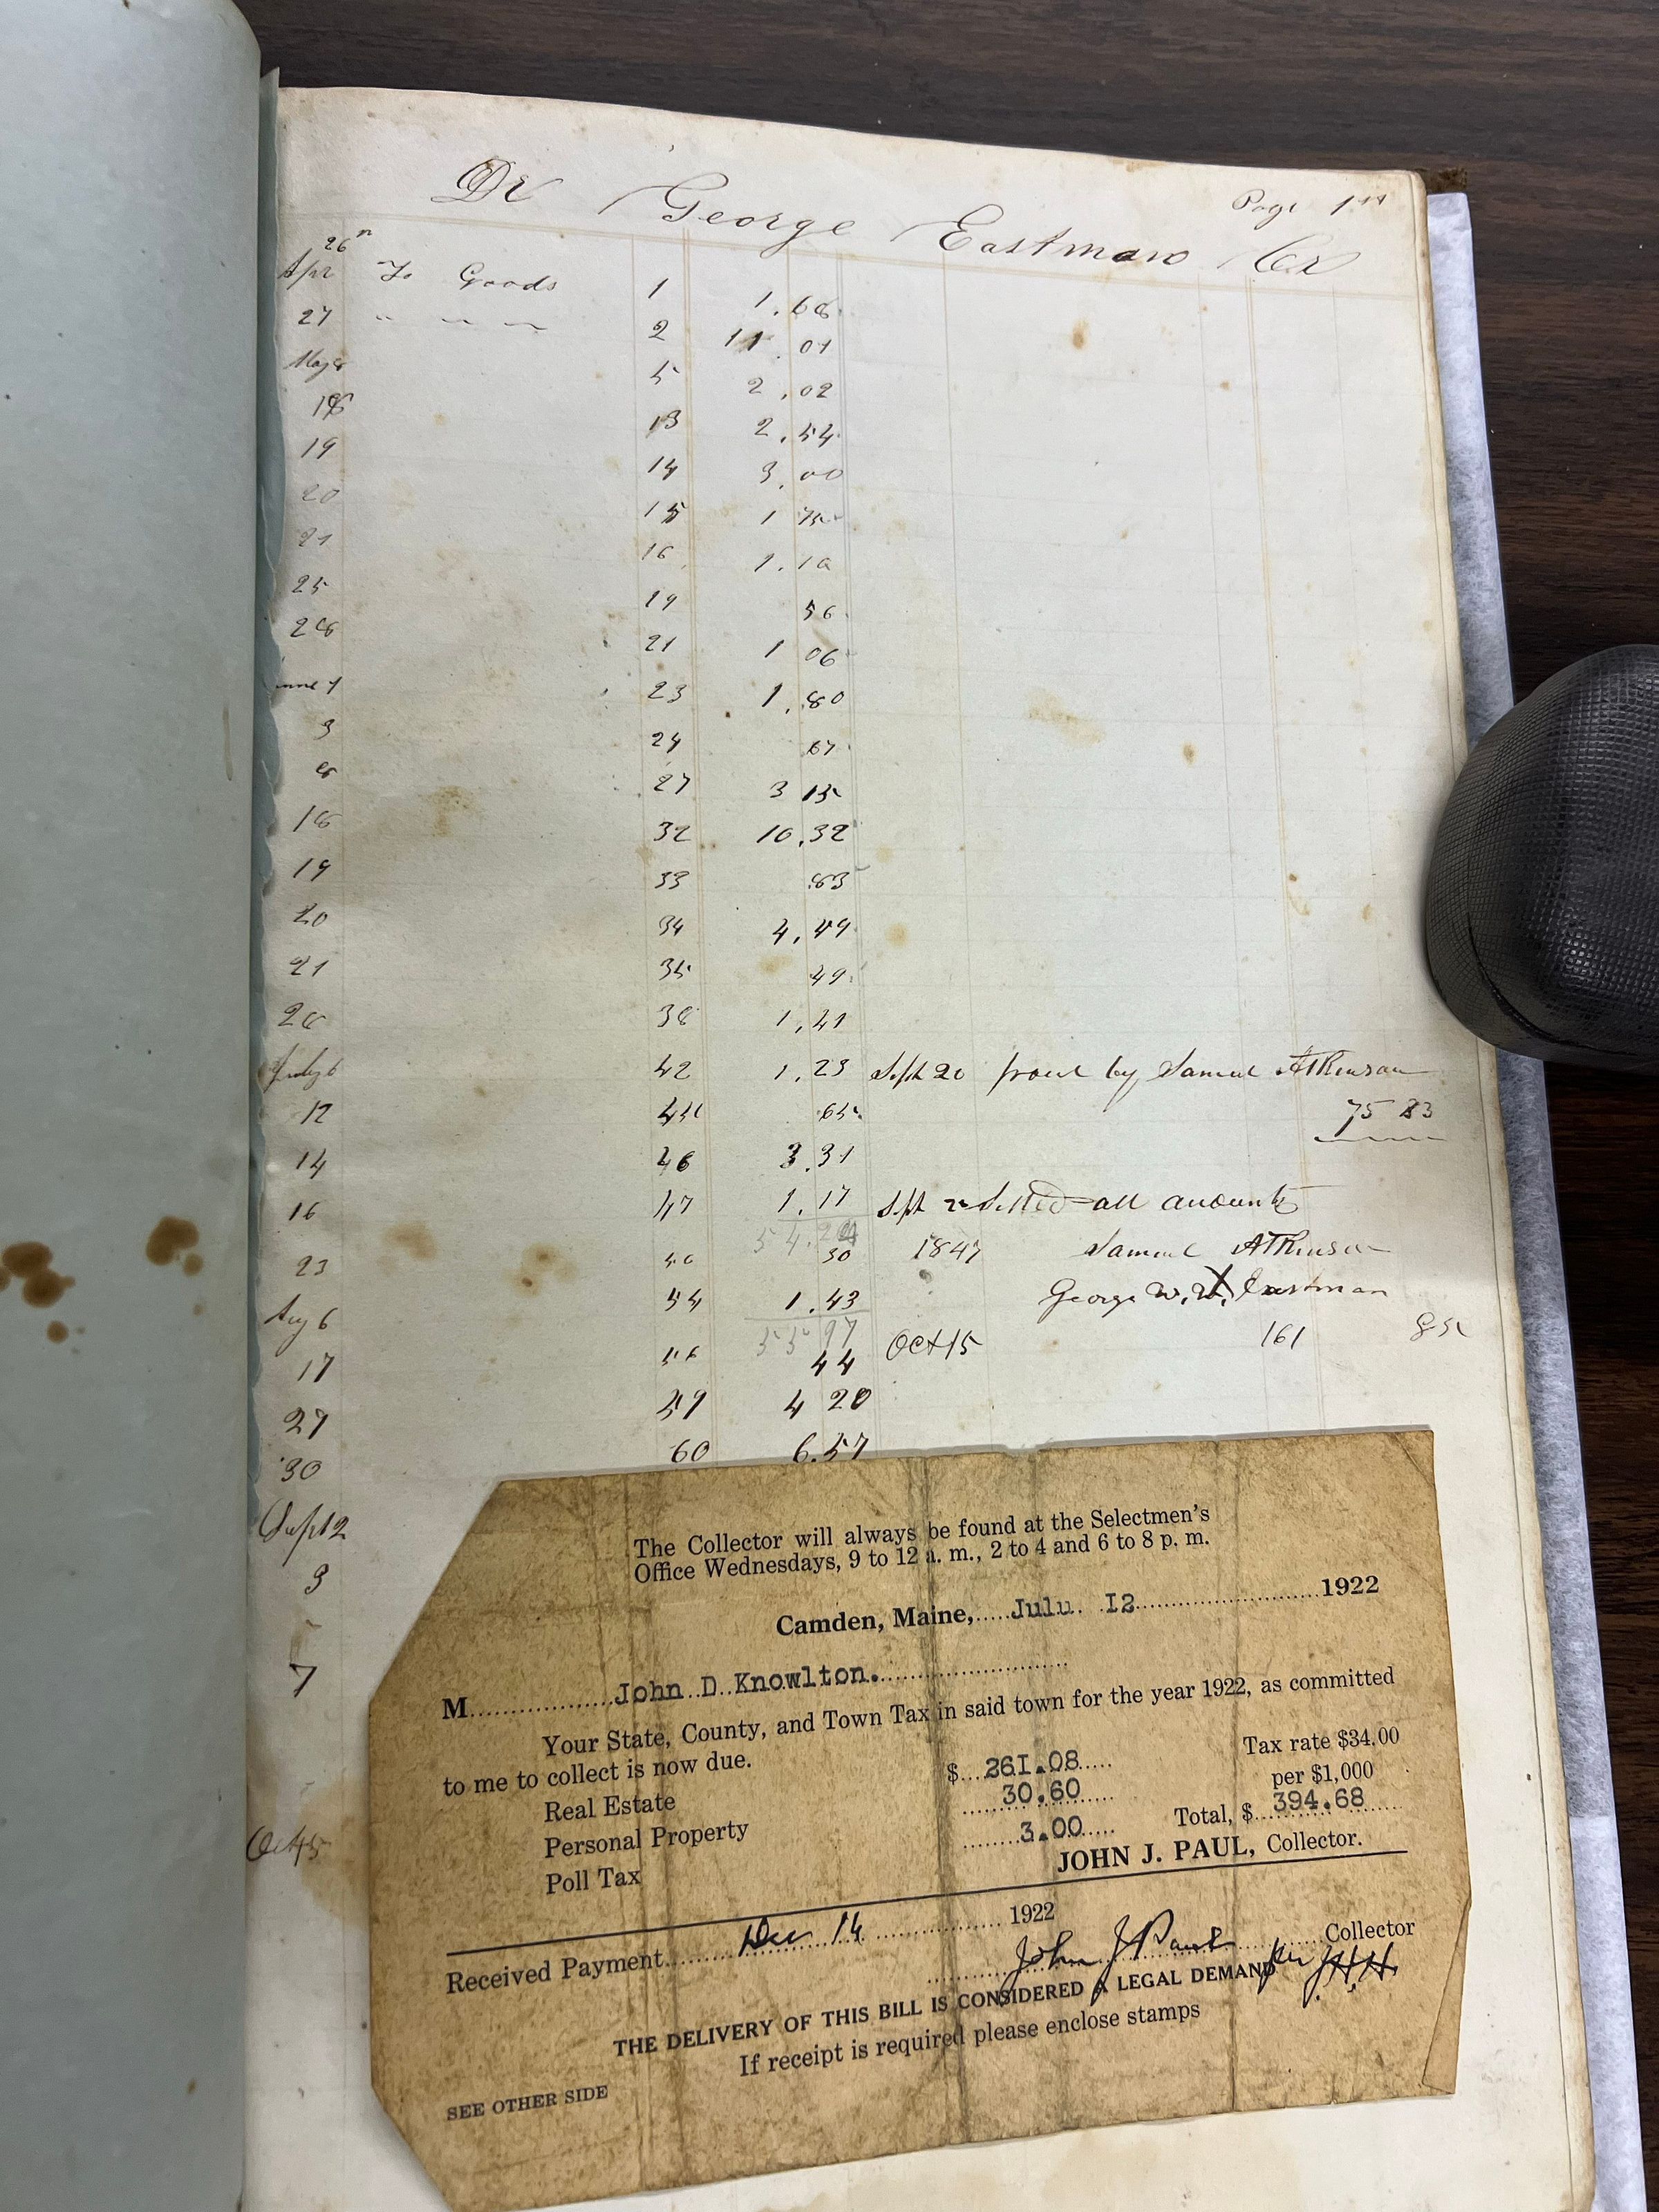 Page 1st
Dr George Eastman Cr
Apr 26 To Goods 1 1.68
27 " " " 2 11.01
May 8 5 2.02
18 13 2.54
19 14 3.00
20 15 1 75
21 16 1.10
25 19 56
28 21 1 06
June 1 23 1.80
3 24 67
8 27 3 15
18 32 10.32
19 33 .83
20 34 4.49
21 35 49
28 38 1,41
July 6 42 1.23 Sept 20 prod by Samuel Atkinson
12 44 .65 75 83
14 46 3.31
16 47 1.17 Sept Settled all accounts
54.24
23 50 30 1847 Samuel Atkinson
Aug 6 54 1.43 George W. W. X Eastman
55 97
17 56 44 Oct 15 161 85
27 59 4 20
30 60 6.57
Sept 2
3
7
Oct 5
The Collector will always be found at the Selectmen's
Office Wednesdays, 9 to 12 a. m., 2 to 4 and 6 to 8 p. m.
Camden, Maine, Julu. I2 1922
M John D Knowlton.
Your State, County, and Town Tax in said town for the year 1922, as committed
to me to collect is now due.
Real Estate $ 26I.08 Tax rate $34.00
Personal Property 30.60 per $1,000
Poll Tax 3.00 Total, $ 394.68
JOHN J. PAUL, Collector.
Received Payment Dec 14 1922
John J Paul Collector
per J.H.H.
THE DELIVERY OF THIS BILL IS CONSIDERED A LEGAL DEMAND
If receipt is required please enclose stamps
SEE OTHER SIDE